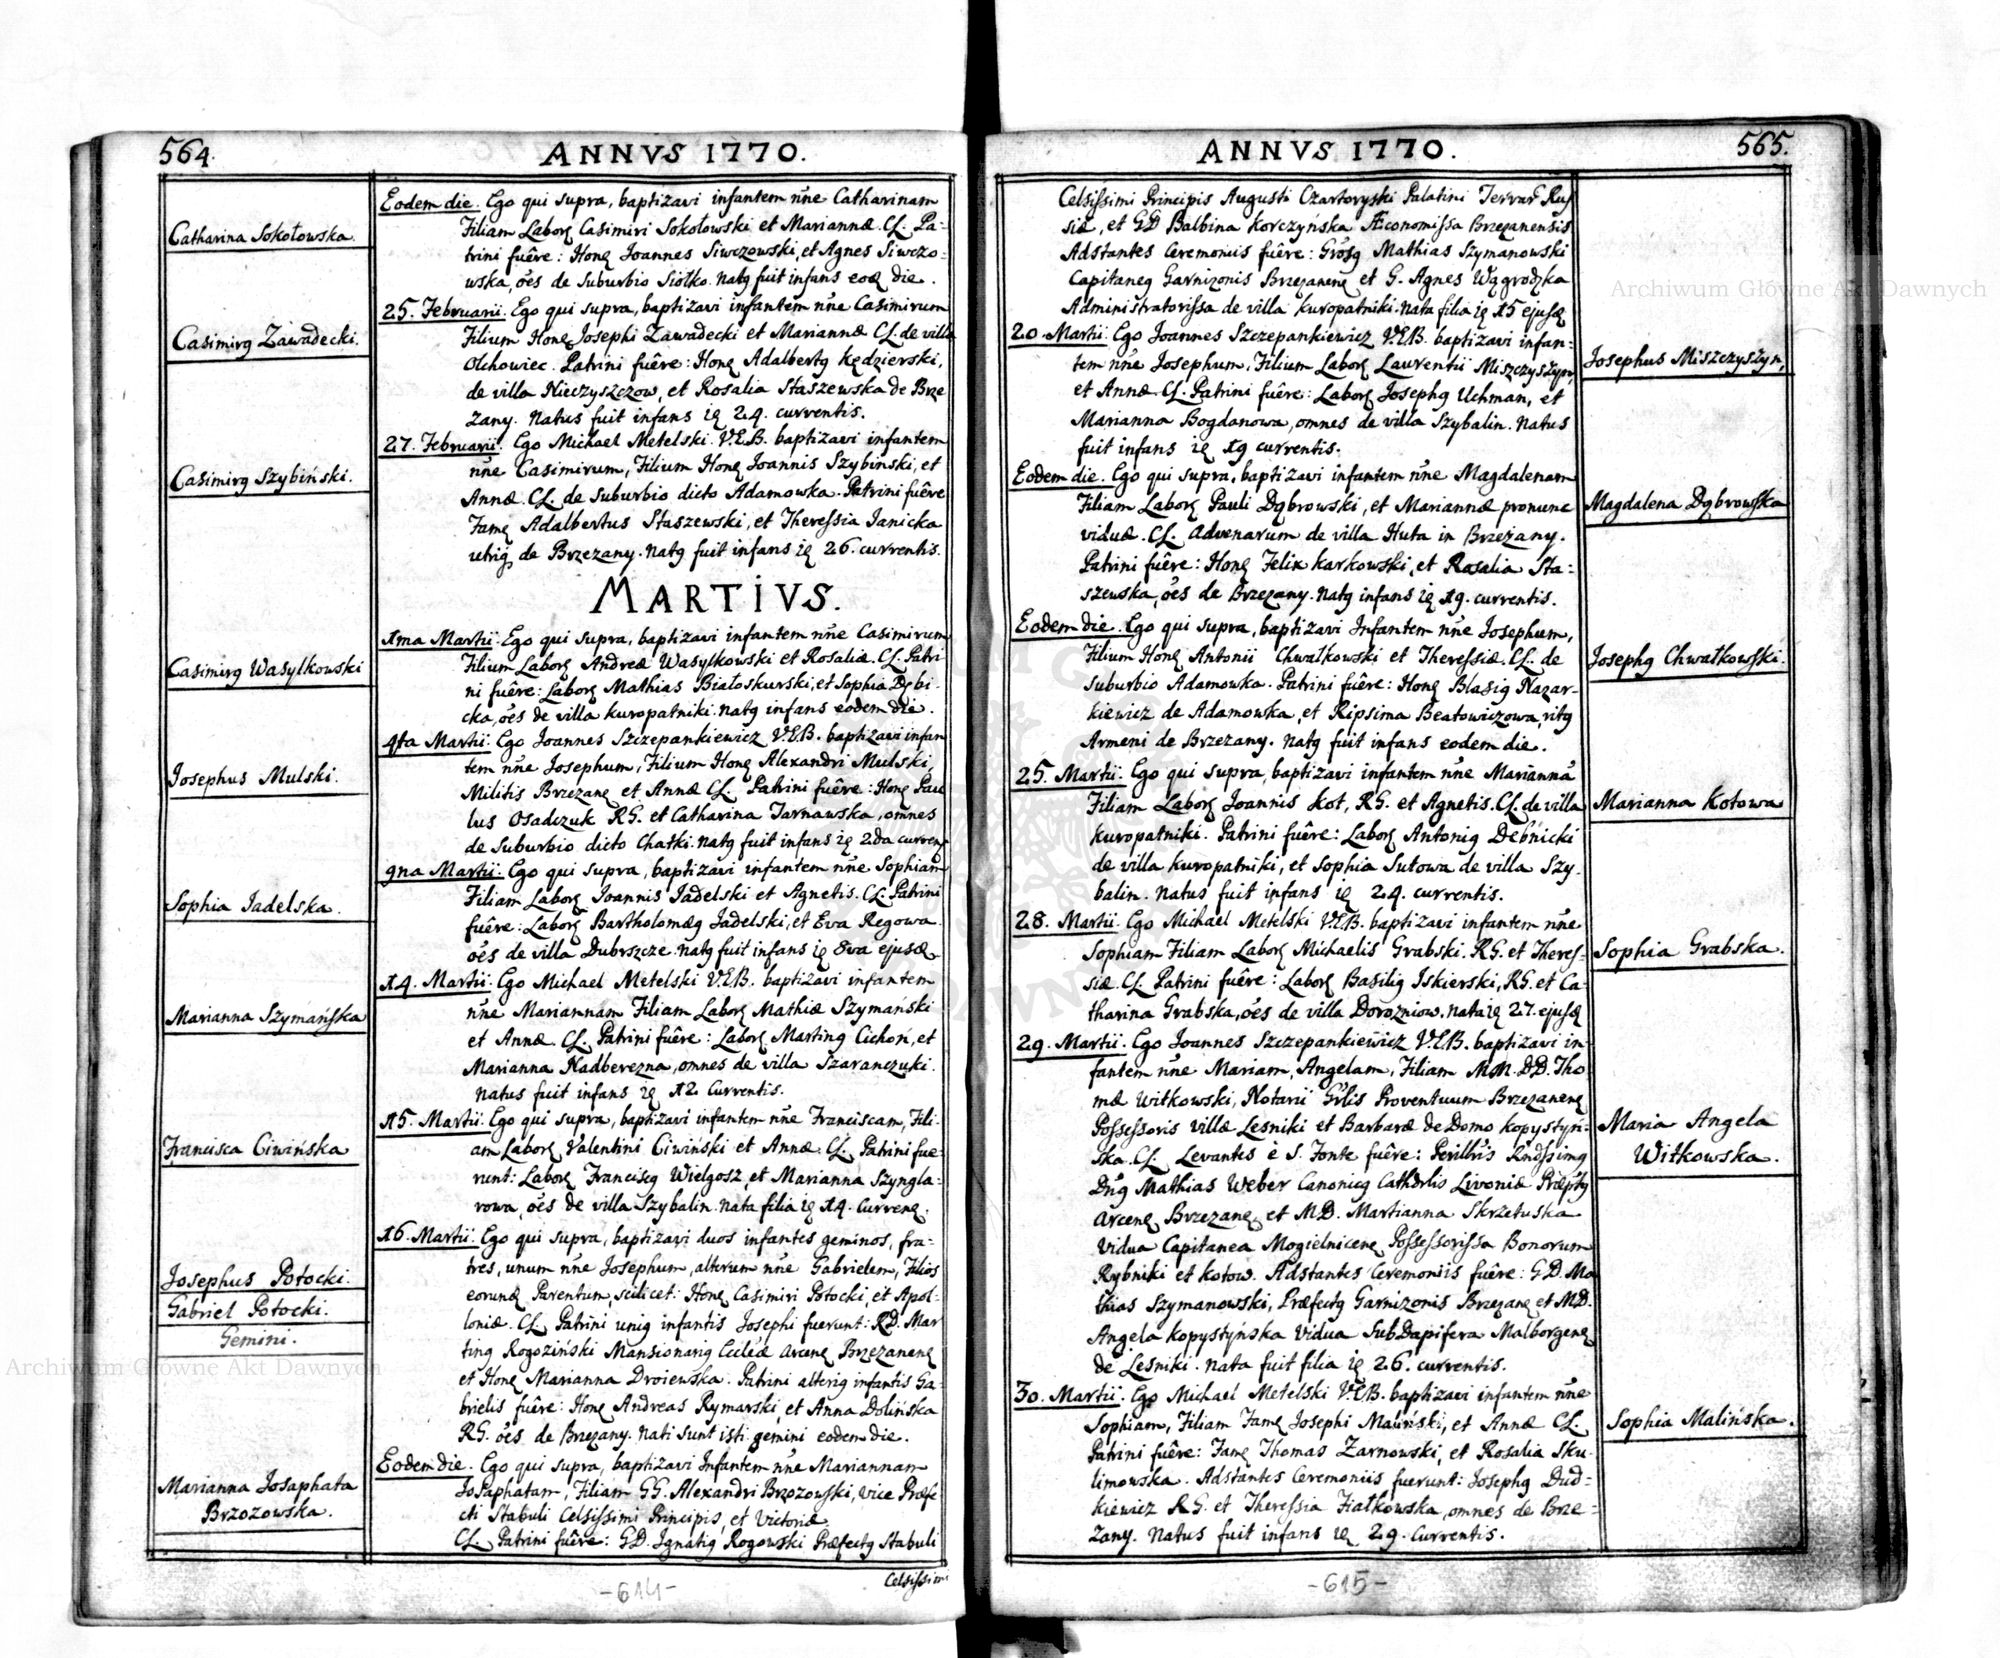 564.
ANNVS 1770.
Catharina Sokołowska.
Casimirꝰ Zawadecki.
Casimirꝰ Szybiński.
Casimirꝰ Wasylkowski
Josephus Mulski.
Sophia Jadelska.
Marianna Szymańska
Francisca Ciwińska
Josephus Potocki.
Gabriel Potocki.
Gemini.
Marianna Josaphata
Brzozowska.
Eodem die. Ego qui supra, baptizavi infantem nñe Catharinam
Filiam Laborꝭ Casimiri Sokołowski et Mariannæ. CL. Pa-
trini fuêre: Honꝭ Joannes Siwczowski, et Agnes Siwczo-
wska, oẽs de Suburbio Siołko. Natꝰ fuit infans eoꝭ die.
25. Februarii. Ego qui supra, baptizavi infantem nñe Casimirum
Filium Honꝭ Josephi Zawadecki et Mariannæ CL. de villa
Olchowiec. Patrini fuêre: Honꝭ Adalbertꝰ Kędzierski,
de villa Nieczyszczow, et Rosalia Staszewska de Brze
zany. Natus fuit infans iꝭ 24. currentis.
27. Februarii. Ego Michael Metelski. V.E.B. baptizavi infantem
nñe Casimirum, Filium Honꝭ Joannis Szybiński, et
Annæ. CL. de Suburbio dicto Adamowka. Patrini fuêre
Famꝭ Adalbertus Staszewski, et Theressia Janicka
utriqꝫ de Brzezany. Natꝰ fuit infans iꝭ 26. currentis.
MARTIVS.
1ma Martii. Ego qui supra, baptizavi infantem nñe Casimirum
Filium Laborꝭ Andreæ Wasylkowski et Rosaliæ. CL. Patri
ni fuêre: Laborꝭ Mathias Białoskurski, et Sophia Dębi-
cka, oẽs de villa Kuropatniki. Natꝰ infans eodem die.
4ta Martii. Ego Joannes Szczepankiewicz V.E.B. baptizavi infan
tem nñe Josephum, Filium Honꝭ Alexandri Mulski,
Militis Brzezanꝭ et Annæ CL. Patrini fuêre: Honꝭ Pau
lus Osadczuk RG. et Catharina Tarnawska, omnes
de Suburbio dicto Chatki. Natꝰ fuit infans iꝭ 2da currenꝭ
9na Martii. Ego qui supra, baptizavi infantem nñe Sophiam
Filiam Laborꝭ Joannis Jadelski et Agnetis. CL. Patrini
fuêre: Laborꝭ Bartholomæꝰ Jadelski, et Eva Regowa.
oẽs de villa Dubrszcze. Natꝰ fuit infans iꝭ 8va ejusꝭ
14. Martii. Ego Michael Metelski V.E.B. baptizavi infantem
nñe Mariannam Filiam Laborꝭ Mathiæ Szymański
et Annæ. CL. Patrini fuêre: Laborꝭ Martinꝰ Cichoń, et
Marianna Nadberezna, omnes de villa Szaranczuki.
Natus fuit infans iꝭ 12 Currentis.
15. Martii. Ego qui supra, baptizavi infantem nñe Franciscam, Fili-
am Laborꝭ Valentini Ciwiński et Annæ. CL. Patrini fue-
runt: Laborꝭ Franciscꝰ Wielgosz, et Marianna Szyngla-
rowa, oẽs de villa Szybalin. Nata filia iꝭ 14. Currenꝭ.
16. Martii. Ego qui supra, baptizavi duos infantes geminos, fra-
tres, unum nñe Josephum, alterum nñe Gabrielem, Filios
eorundꝭ Parentum, scilicet: Honꝭ Casimiri Potocki, et Apol-
loniæ. CL. Patrini uniꝰ infantis Josephi fuerunt: RD. Mar
tinꝰ Rogoziński Mansionariꝰ Ecclæ Arcenꝭ Brzezanenꝭ
et Honꝭ Marianna Droiewska. Patrini alteriꝰ infantis Ga-
brielis fuêre: Honꝭ Andreas Rymarski, et Anna Dolińska
RG. oẽs de Brzezany. Nati sunt isti gemini eodem die.
Eodem die. Ego qui supra, baptizavi Infantem nñe Mariannam
Josaphatam, Filiam GG. Alexandri Brzozowski, vice Præfe
cti Stabuli Celsissimi Principis, et Victoriæ
CL. Patrini fuêre: GD. Ignatiꝰ Rogowski Præfectꝰ Stabuli
Celsissimi
-614-
ANNVS 1770.
565.
Celsissimi Principis Augusti Czartoryski Palatini Terrarꝭ Rus
siæ, et GD Balbina Korczyńska Æconomissa Brzezanensis
Adstantes Ceremoniis fuêre: Mathias Szymanowski
Capitaneꝰ Garnizonis Brzezanenꝭ et G. Agnes Wągrodzka
Administratorissa de villa Kuropatniki. Nata filia iꝭ 15 ejusꝭ
20. Martii. Ego Joannes Szczepankiewicz V.E.B. baptizavi infan-
tem nñe Josephum, Filium Laborꝭ Laurentii Miszczyszyn,
et Annæ. CL. Patrini fuêre: Laborꝭ Josephꝰ Uchman, et
Marianna Bogdanowa, omnes de villa Szybalin. Natus
fuit infans iꝭ 19 currentis.
Eodem die. Ego qui supra, baptizavi infantem nñe Magdalenam
Filiam Laborꝭ Pauli Dąbrowski, et Mariannæ pronunc
viduæ. CL. Advenarum de villa Huta in Brzezany.
Patrini fuêre: Honꝭ Felix Karkowski, et Rosalia Sta-
szewska, oẽs de Brzezany. Natꝰ infans iꝭ 19. currentis.
Eodem die. Ego qui supra, baptizavi Infantem nñe Josephum,
Filium Honꝭ Antonii Chwałkowski et Theressiæ. CL. de
Suburbio Adamowka. Patrini fuêre: Honꝭ Blasiꝰ Nazar-
kiewicz de Adamowka, et Ripsima Beatowiczowa, ritꝰ
Armeni de Brzezany. Natꝰ fuit infans eodem die.
25. Martii. Ego qui supra, baptizavi infantem nñe Mariannã
Filiam Laborꝭ Joannis Kot, RG. et Agnetis. CL. de villa
Kuropatniki. Patrini fuêre: Laborꝭ Antoniꝰ Debnicki
de villa Kuropatniki, et Sophia Sutowa de villa Szy-
balin. Natus fuit infans iꝭ 24. currentis.
28. Martii. Ego Michael Metelski V.E.B. baptizavi infantem nñe
Sophiam Filiam Laborꝭ Michaelis Grabski. RG. et Theres-
siæ. CL. Patrini fuêre: Laborꝭ Basiliꝰ Iskierski, RG. et Ca-
tharina Grabska, oẽs de villa Dorozniow. Nata iꝭ 27. ejusꝭ
29. Martii. Ego Joannes Szczepankiewicz V.E.B. baptizavi in-
fantem nñe Mariam, Angelam, Filiam MM. DD. Tho
mæ Witkowski, Notarii Gñlis Proventuum Brzezanenꝭ
Possessoris villæ Lesniki et Barbaræ de Domo Kopystyń-
ska. CL. Levantes è S. Fonte fuêre: Perillris Rndssimꝰ
Dñꝰ Mathias Weber Canonicꝰ Cathdrlis Livoniæ Præptꝰ
Arcenꝭ Brzezanꝭ et MD. Martianna Skrzetuska
Vidua Capitanea Mogielnicenꝭ Possessorissa Bonorum
Rybniki et Kotow. Adstantes Ceremoniis fuêre: GD. Ma
thias Szymanowski, Præfectꝰ Garnizonis Brzezanꝭ et MD.
Angela Kopystyńska Vidua SubDapifera Malborgenꝭ
de Lesniki. Nata fuit filia iꝭ 26. currentis.
30. Martii. Ego Michael Metelski V.E.B. baptizavi infantem nñe
Sophiam, Filiam Famꝭ Josephi Maliński, et Annæ CL.
Patrini fuêre: Famꝭ Thomas Zarnowski, et Rosalia Sku-
limowska. Adstantes Ceremoniis fuerunt: Josephꝰ Dud-
kiewicz RG. et Theressia Fiałkowska, omnes de Brze-
zany. Natus fuit infans iꝭ 29. Currentis.
Josephus Miszczyszyn,
Magdalena Dąbrowska
Josephꝰ Chwałkowski.
Marianna Kotowa
Sophia Grabska.
Maria Angela
Witkowska.
Sophia Malińska.
-615-
Archiwum Główne Akt Dawnych
Archiwum Główne Akt Dawnych